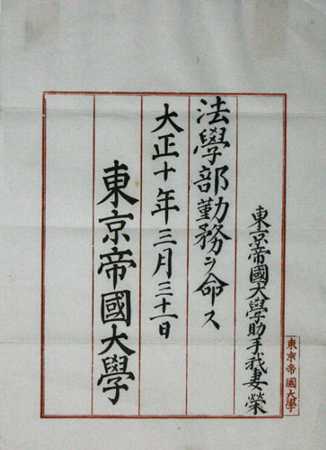 東京帝國大學助手我妻榮
法學部勤務ヲ命ス
大正十年三月三十一日
東京帝國大學
東京帝國大學